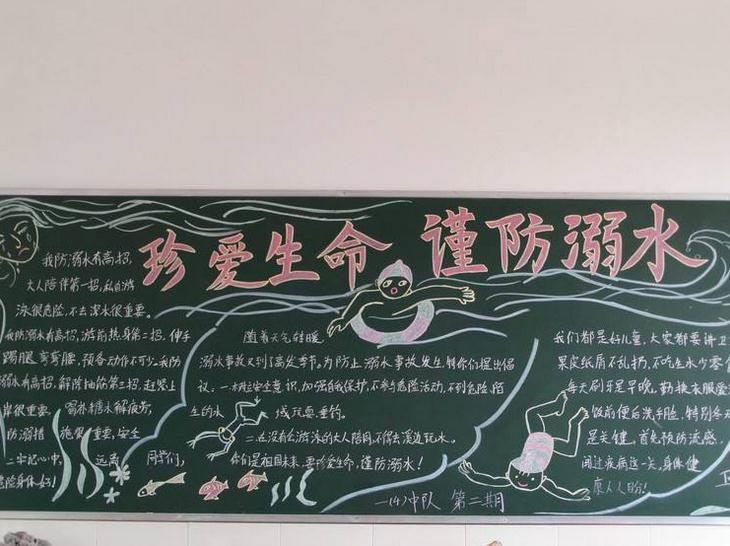 珍爱生命 谨防溺水
我防溺水有高招,
大人陪伴第一招,私自游
泳很危险,不去深水很重要。
我防溺水有高招,游前热身第二招,伸手
踢腿弯弯腰,预备动作不可少。我防
溺水有高招,解除抽筋第三招,赶紧上
岸很重要,喝补糖水解疲劳,
防溺措施很重要,安全
二字记心中,远离
危险身体好!
随着天气转暖
溺水事故又到了高发季节。为防止溺水事故发生,特你们提出倡
议,一、树立安全意识,加强自我保护,不参与危险活动,不到危险,陌
生的水域玩耍、垂钓。
二、在没有会游泳的大人陪同,不得去溪边玩水。
同学们,你们是祖国未来,要珍爱生命,谨防溺水!
一(4)中队 第二期
我们都是好儿童,大家都要讲卫
果皮纸屑不乱扔,不吃生水少零
每天刷牙是早晚,勤换衣服爱
饭前便后洗手脸,特别冬
是关健,首先预防流感,
闯过疾病这一关,身体健
康人人盼!